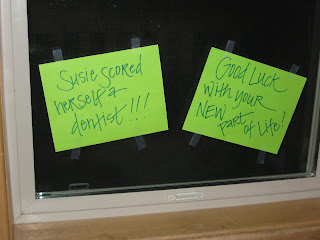 Susie scored
herself a
dentist!!!
Good Luck
with your
NEW
part of life!